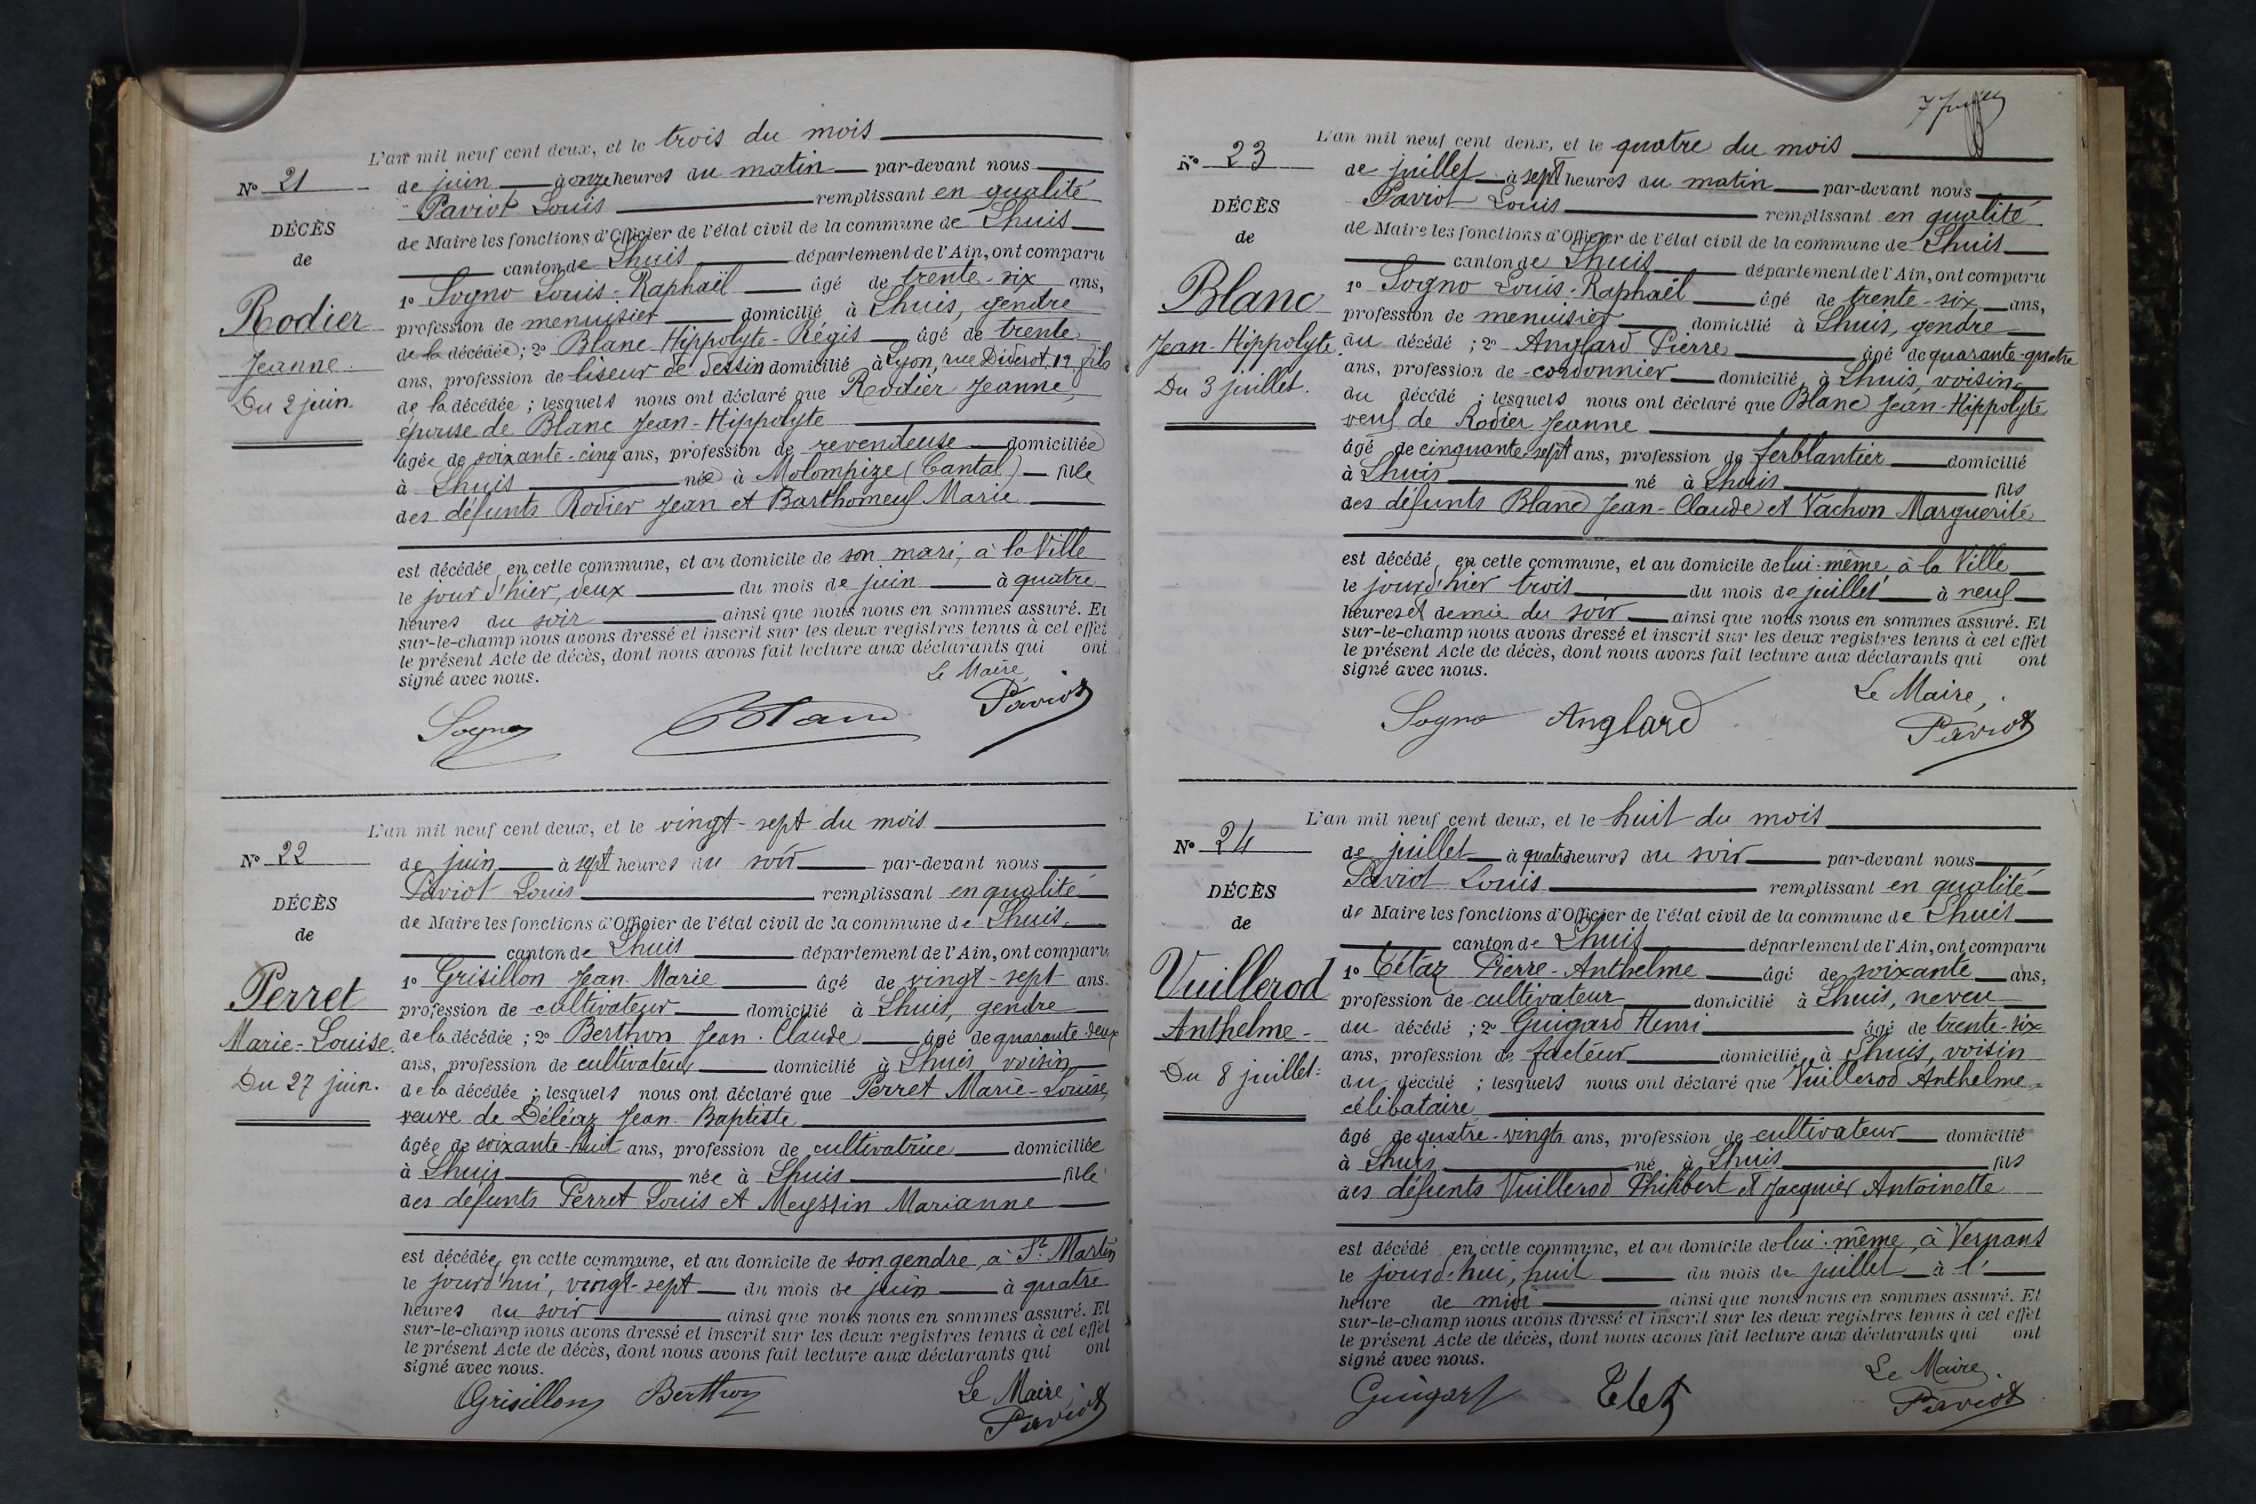 L'an mil neuf cent deux, et le trois du mois
N° 21
de juin à onze heures du matin par-devant nous
Paviot Louis remplissant en qualité
DÉCÈS
de Maire les fonctions d'Officier de l'état civil de la commune de Lhuis
de
canton de Lhuis département de l'Ain, ont comparu
1° Sogno Louis-Raphaël âgé de trente-six ans,
Rodier
profession de menuisier domicilié à Lhuis, gendre
de la décédée; 2° Blanc Hippolyte-Régis âgé de trente
Jeanne
ans, profession de liseur de dessin domicilié à Lyon, rue Diderot, 12, fils
Du 2 juin.
de la décédée; lesquels nous ont déclaré que Rodier Jeanne,
épouse de Blanc Jean-Hippolyte
âgée de soixante-cinq ans, profession de revendeuse domiciliée
à Lhuis née à Molompize (Cantal) fille
des défunts Rodier Jean et Barthomeuf Marie
est décédée en cette commune, et au domicile de son mari, à la Ville
le jour d'hier, deux du mois de juin à quatre
heures du soir ainsi que nous nous en sommes assuré. Et
sur-le-champ nous avons dressé et inscrit sur les deux registres tenus à cet effet
le présent Acte de décès, dont nous avons fait lecture aux déclarants qui ont
signé avec nous.
Le Maire,
Sogno Blanc Paviot
L'an mil neuf cent deux, et le vingt-sept du mois
N° 22
de juin à sept heures du soir par-devant nous
Paviot Louis remplissant en qualité
DÉCÈS
de Maire les fonctions d'Officier de l'état civil de la commune de Lhuis
de
canton de Lhuis département de l'Ain, ont comparu
1° Grisillon Jean-Marie âgé de vingt-sept ans.
Perret
profession de cultivateur domicilié à Lhuis, gendre
Marie-Louise.
de la décédée; 2° Berthon Jean-Claude âgé de quarante-deux
ans, profession de cultivateur domicilié à Lhuis, voisin
Du 27 juin.
de la décédée; lesquels nous ont déclaré que Perret Marie-Louise,
veuve de Déléaz Jean-Baptiste
âgée de soixante-huit ans, profession de cultivatrice domiciliée
à Lhuis née à Lhuis fille
des défunts Perret Louis et Meyssin Marianne
est décédée en cette commune, et au domicile de son gendre, à St. Martin
le jourd'hui, vingt-sept du mois de juin à quatre
heures du soir ainsi que nous nous en sommes assuré. Et
sur-le-champ nous avons dressé et inscrit sur les deux registres tenus à cet effet
le présent Acte de décès, dont nous avons fait lecture aux déclarants qui ont
signé avec nous.
Le Maire,
Grisillon Berthon Paviot
L'an mil neuf cent deux, et le quatre du mois
N° 23
de juillet à sept heures du matin par-devant nous
Paviot Louis remplissant en qualité
DÉCÈS
de Maire les fonctions d'Officier de l'état civil de la commune de Lhuis
de
canton de Lhuis département de l'Ain, ont comparu
1° Sogno Louis-Raphaël âgé de trente-six ans,
Blanc
profession de menuisier domicilié à Lhuis, gendre
Jean-Hippolyte.
du décédé; 2° Anglard Pierre âgé de quarante-quatre
ans, profession de cordonnier domicilié à Lhuis, voisin
Du 3 juillet.
du décédé; lesquels nous ont déclaré que Blanc Jean-Hippolyte
veuf de Rodier Jeanne
âgé de cinquante-sept ans, profession de ferblantier domicilié
à Lhuis né à Lhuis fils
des défunts Blanc Jean-Claude et Vachon Marguerite
est décédé en cette commune, et au domicile de lui-même à la Ville
le jourd'hier trois du mois de juillet à neuf
heures et demie du soir ainsi que nous nous en sommes assuré. Et
sur-le-champ nous avons dressé et inscrit sur les deux registres tenus à cet effet
le présent Acte de décès, dont nous avons fait lecture aux déclarants qui ont
signé avec nous.
Le Maire,
Sogno Anglard Paviot
L'an mil neuf cent deux, et le huit du mois
N° 24
de juillet à quatre heures du soir par-devant nous
Paviot Louis remplissant en qualité
DÉCÈS
de Maire les fonctions d'Officier de l'état civil de la commune de Lhuis
de
canton de Lhuis département de l'Ain, ont comparu
1° Tétaz Pierre-Anthelme âgé de soixante ans,
Vuillerod
profession de cultivateur domicilié à Lhuis, neveu
Anthelme
du décédé; 2° Guigard Henri âgé de trente-six
ans, profession de facteur domicilié à Lhuis, voisin
Du 8 juillet
du décédé; lesquels nous ont déclaré que Vuillerod Anthelme
célibataire
âgé de quatre-vingts ans, profession de cultivateur domicilié
à Lhuis né à Lhuis fils
des défunts Vuillerod Philibert et Jacquier Antoinette
est décédé en cette commune, et au domicile de lui-même, à Vernans
le jourd'hui, huit du mois de juillet à l'
heure de midi ainsi que nous nous en sommes assuré. Et
sur-le-champ nous avons dressé et inscrit sur les deux registres tenus à cet effet
le présent Acte de décès, dont nous avons fait lecture aux déclarants qui ont
signé avec nous.
Le Maire,
Guigard Paviot